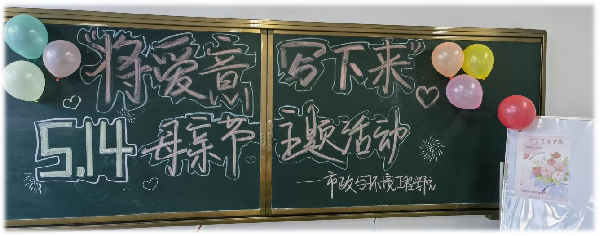 “将爱意 写下来”
5.14 母亲节 主题活动
——市政与环境工程学院